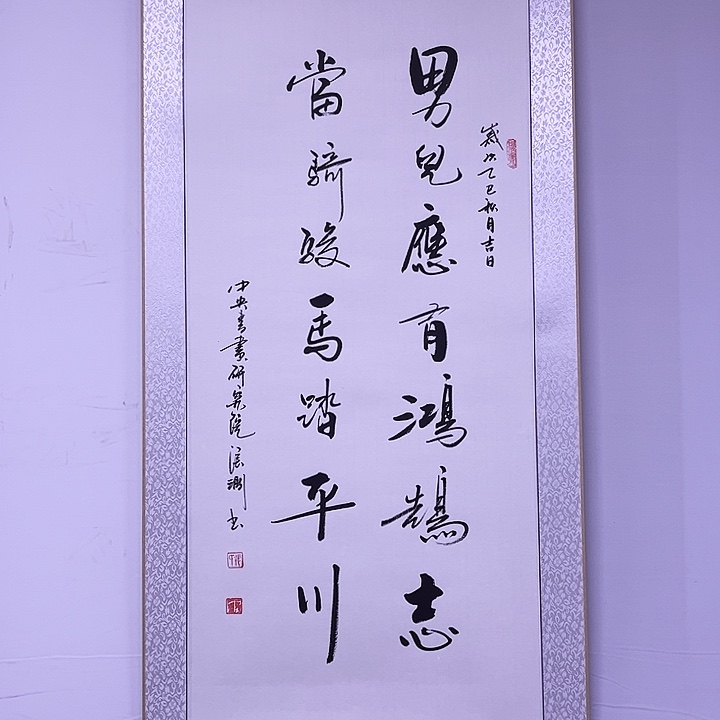 歲次乙巳秋月吉日
男兒應有鴻鵠志
當騎駿馬踏平川
中央書畫研究院 淵書